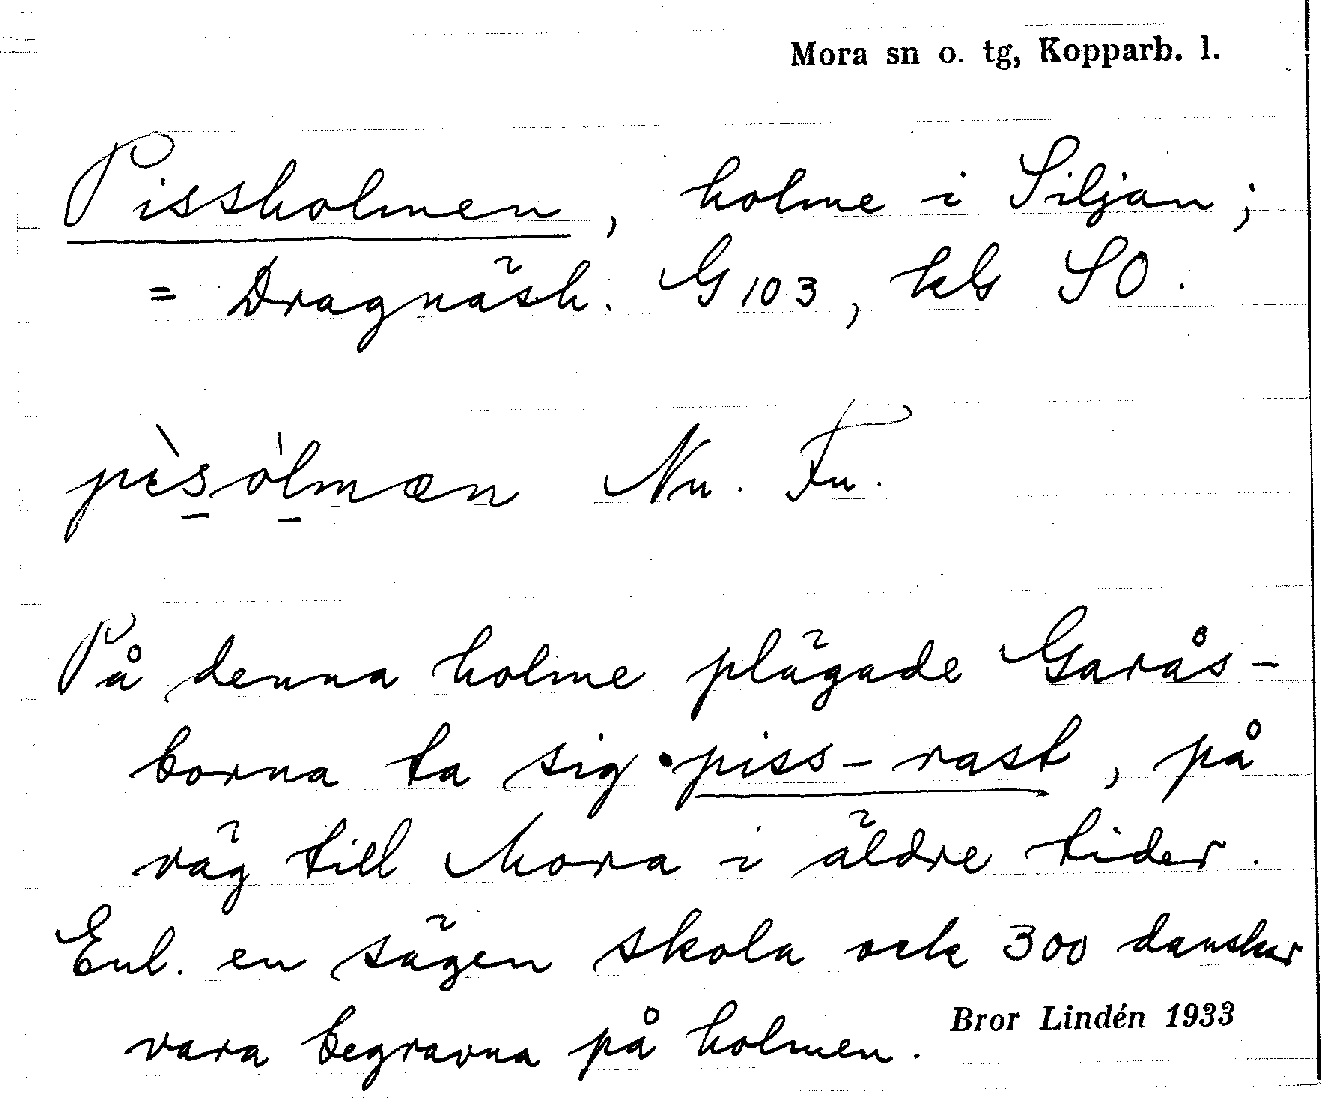 Mora sn o. tg, Kopparb. l.
Pissholmen, holme i Siljan;
= Dragnäsh. G 103, kbl SO.
pìsòlmæn Nu. Fu.
På denna holme plägade Garås-
borna ta sig piss-rast, på
väg till Mora i äldre tider.
Enl. en sägen skola ock 300 danskar
vara begravna på holmen.
Bror Lindén 1933